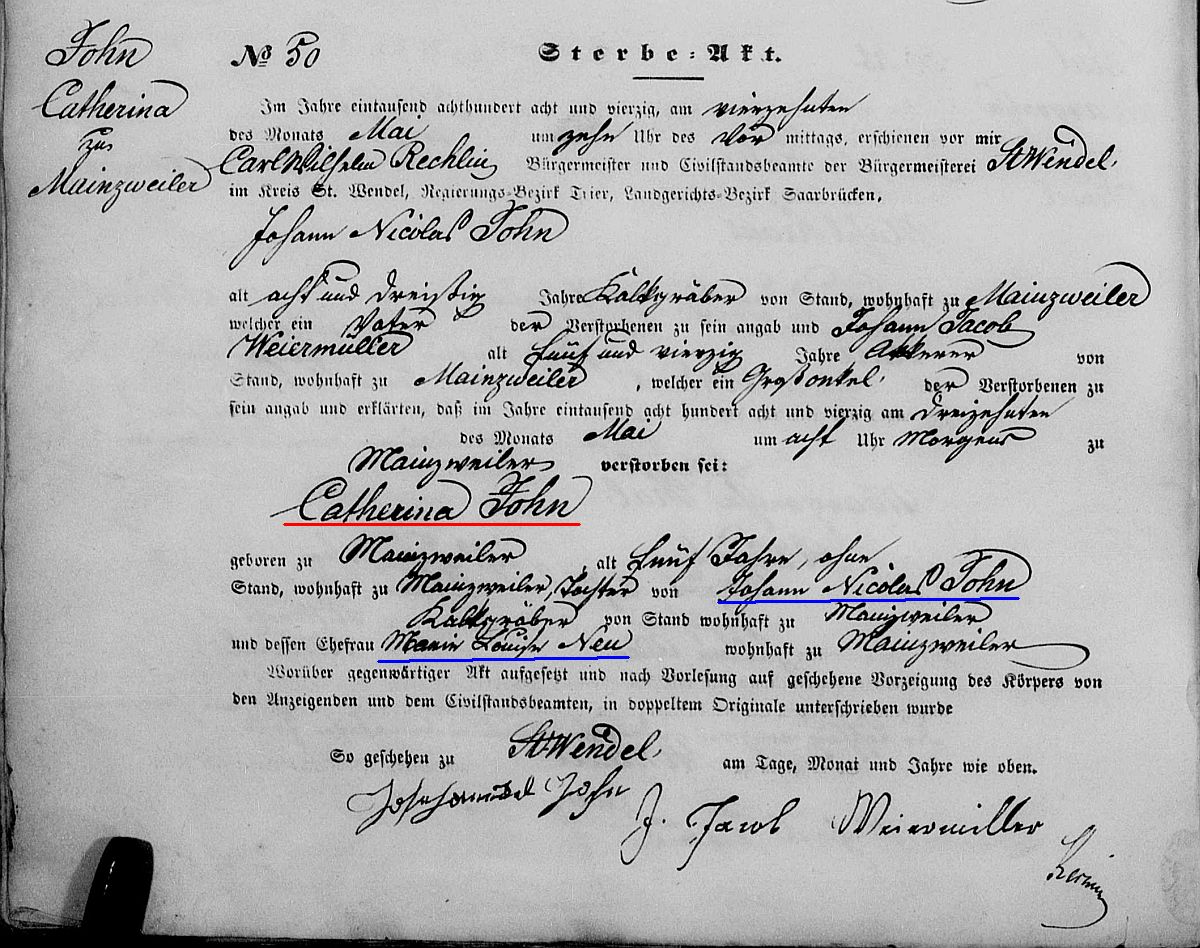 John
Catherina
zu
Mainzweiler
No 50
Sterbe-Akt.
Im Jahre eintausend achthundert acht und vierzig, am vierzehnten
des Monats Mai um zehn Uhr des Vor mittags, erschienen vor mir
Carl Wilhelm Rechlin Bürgermeister und Civilstandsbeamte der Bürgermeisterei St Wendel,
im Kreis St. Wendel, Regierungs-Bezirk Trier, Landgerichts-Bezirk Saarbrücken,
Johann Nicolas John
alt acht und dreißig Jahre Kalkgräber von Stand, wohnhaft zu Mainzweiler
welcher ein Vater der Verstorbenen zu sein angab und Johann Jacob
Weiermüller alt fünf und vierzig Jahre Akkerer von
Stand, wohnhaft zu Mainzweiler, welcher ein Großonkel der Verstorbenen zu
sein angab und erklärten, daß im Jahre eintausend acht hundert acht und vierzig am dreizehnten
des Monats Mai um acht Uhr Morgens zu
Mainzweiler verstorben sei:
Catherina John
geboren zu Mainzweiler, alt fünf Jahre, ohne
Stand, wohnhaft zu Mainzweiler, Tochter von Johann Nicolas John
Kalkgräber von Stand wohnhaft zu Mainzweiler
und dessen Ehefrau Marie Louise Neu wohnhaft zu Mainzweiler
Worüber gegenwärtiger Akt aufgesetzt und nach Vorlesung auf geschehene Vorzeigung des Körpers von
den Anzeigenden und dem Civilstandsbeamten, in doppeltem Originale unterschrieben wurde
So geschehen zu St Wendel am Tage, Monat und Jahre wie oben.
John
J. Jacob Weiermiller